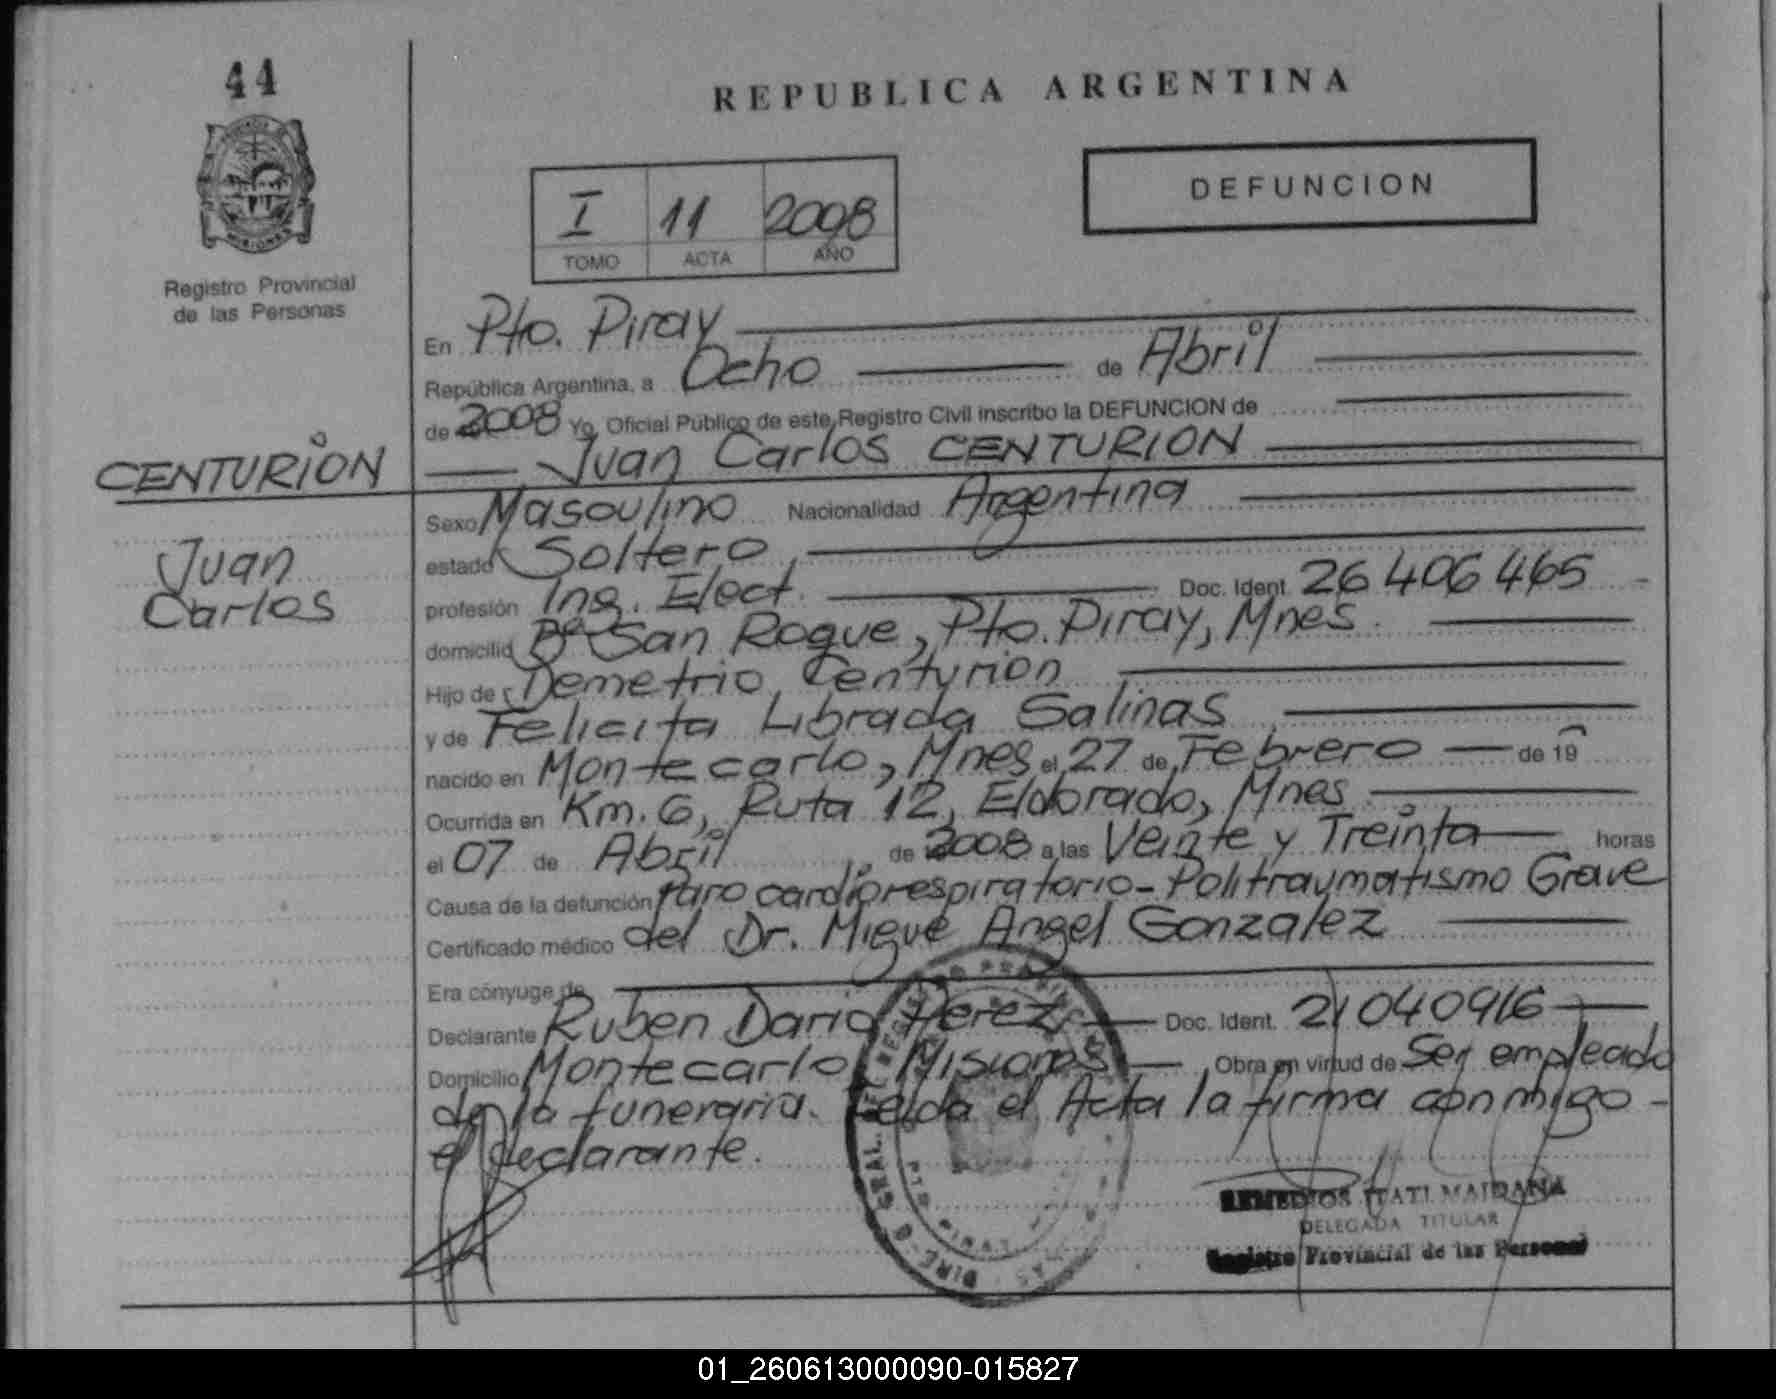 44
REPUBLICA ARGENTINA
DEFUNCION
I 11 2008
TOMO ACTA AÑO
Registro Provincial
de las Personas
En Pto. Piray
República Argentina, a Ocho de Abril
de 2008 Yo, Oficial Público de este Registro Civil inscribo la DEFUNCION de
Juan Carlos CENTURION
CENTURION
Juan
Carlos
Sexo Masculino Nacionalidad Argentina
estado Soltero
profesión Ing. Elect. Doc. Ident. 26406465
domicilio Bº San Roque, Pto. Piray, Mnes.
Hijo de Demetrio Centurion
y de Felicita Librada Salinas
nacido en Montecarlo, Mnes el 27 de Febrero de 19
Ocurrida en Km. 6, Ruta 12, Eldorado, Mnes
el 07 de Abril de 2008 a las Veinte y Treinta horas
Causa de la defunción Paro cardiorespiratorio - Politraumatismo Grave
Certificado médico del Dr. Migue Angel Gonzalez
Era cónyuge de
Declarante Ruben Dario Perez Doc. Ident. 21040916
Domicilio Montecarlo Misiones Obra en virtud de Ser empleado
de la funeraria. Leida el Acta la firma conmigo -
el declarante.
REMEDIOS ITATI MAIDANA
DELEGADA TITULAR
Registro Provincial de las Personas
01_260613000090-015827